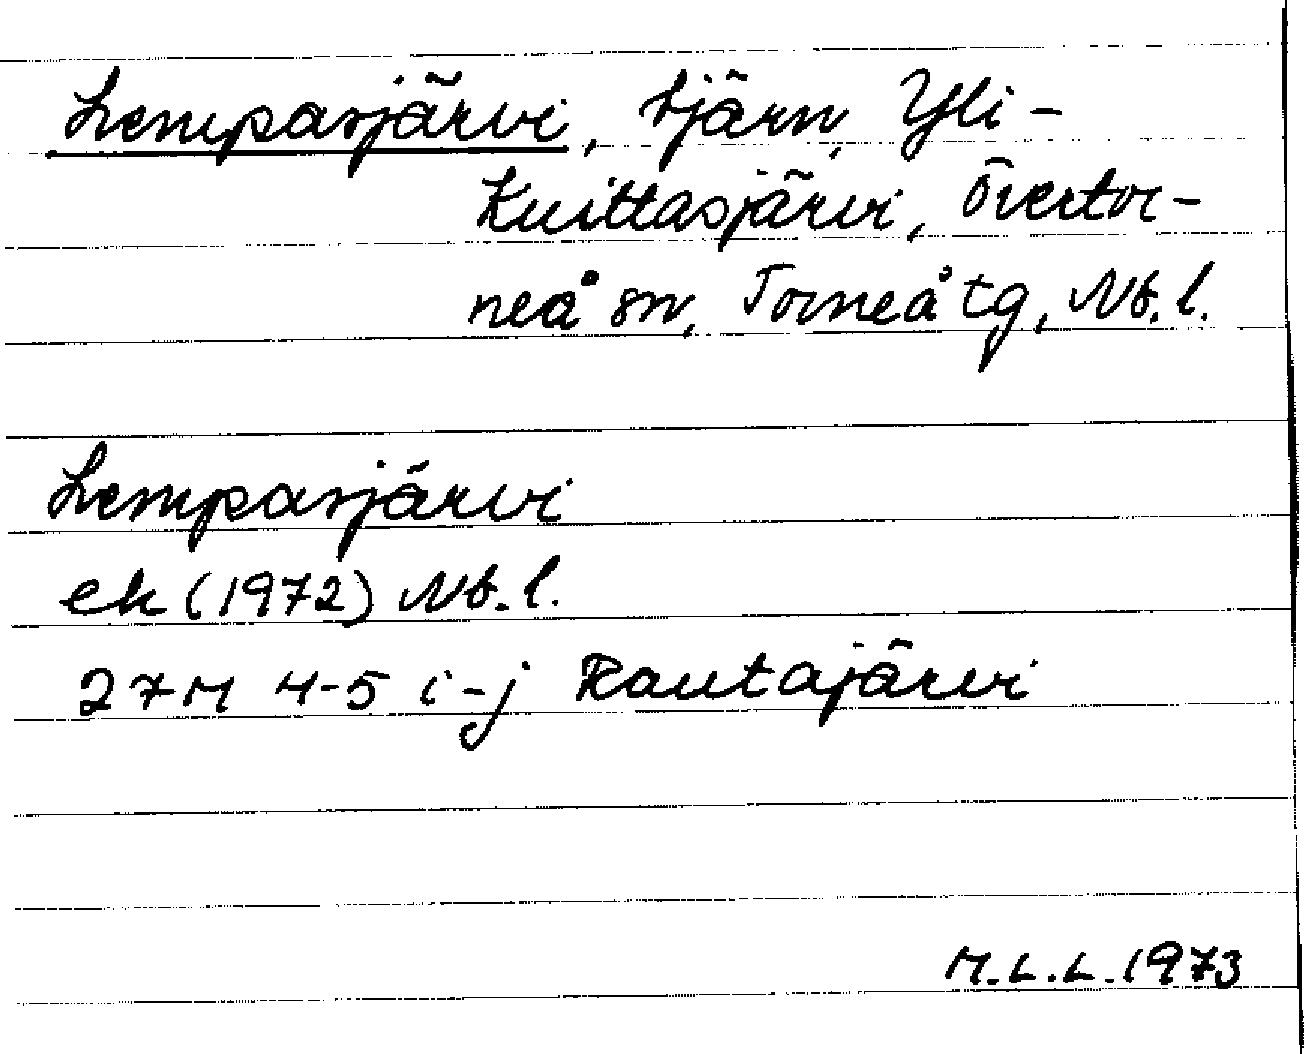 Lempasjärvi, tjärn, Yli-
Kuittasjärvi, Övertor-
neå sn, Torneå tg, Nb. l.
Lempasjärvi
ek (1972) Nb. l.
27M 4-5 i-j Rautajärvi
M.L.L. 1973